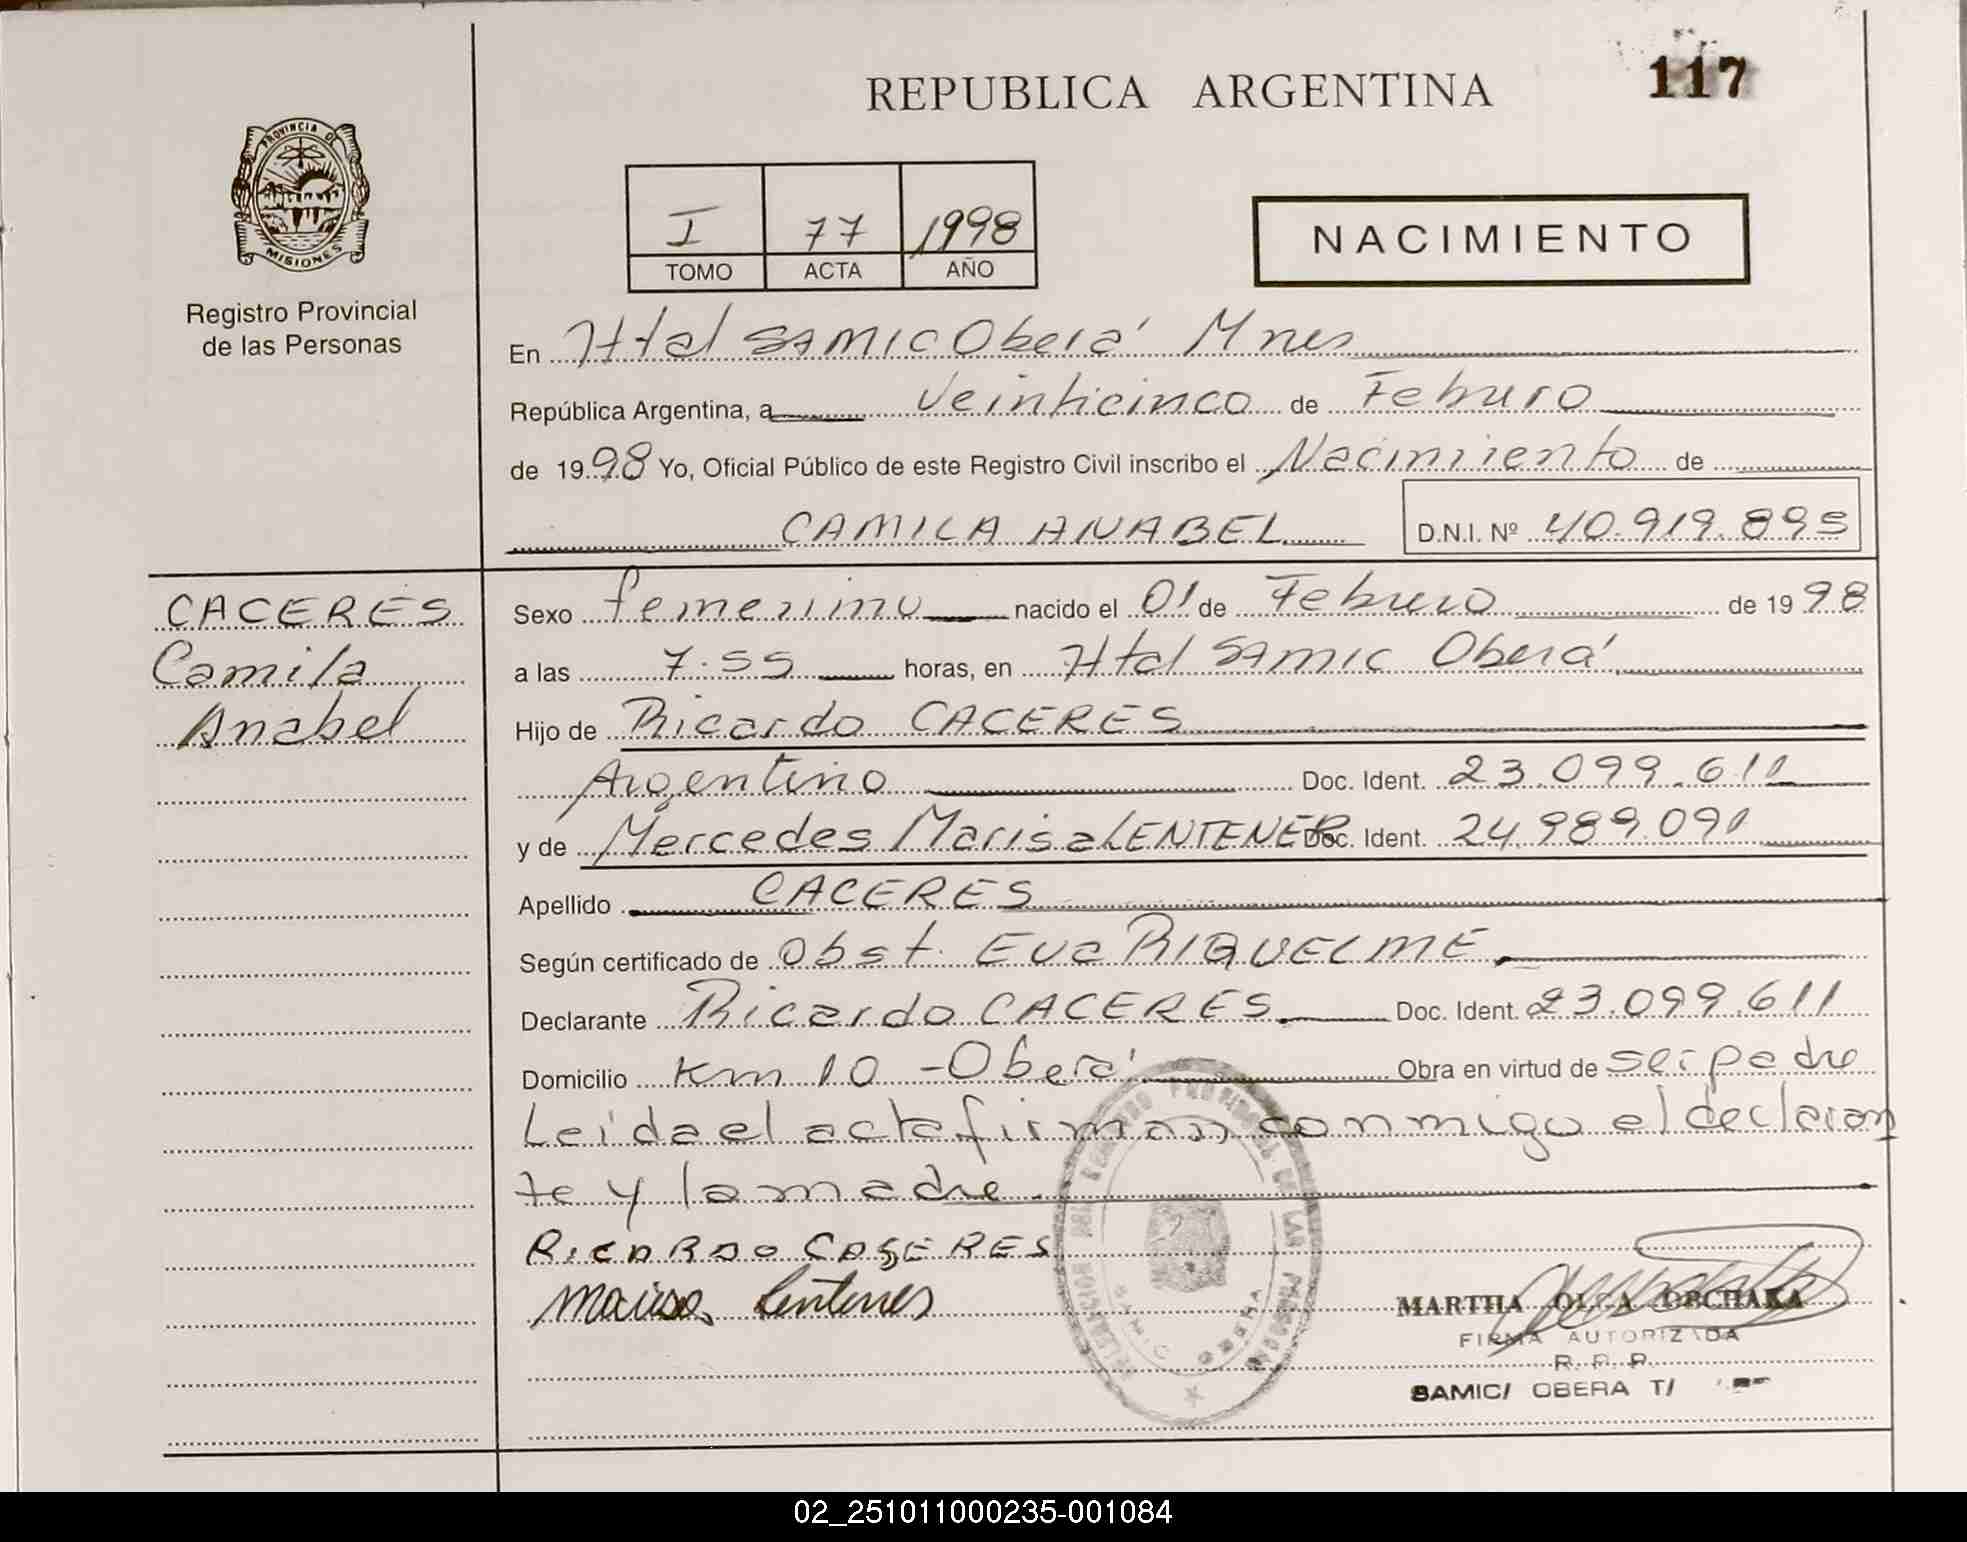 REPUBLICA ARGENTINA
117
PROVINCIA DE
MISIONES
Registro Provincial
de las Personas
I 77 1998
TOMO ACTA AÑO
NACIMIENTO
En Htal SAMIC Oberá Mnes
República Argentina, a veinticinco de Febrero
de 1998 Yo, Oficial Público de este Registro Civil inscribo el Nacimiento de
CAMILA ANABEL D.N.I. Nº 40.919.895
CACERES
Camila
Anabel
Sexo femenino nacido el 01 de Febrero de 1998
a las 7.55 horas, en Htal SAMIC Oberá
Hijo de Ricardo CACERES
Argentino Doc. Ident. 23.099.611
y de Mercedes Marisa LENTENER Doc. Ident. 24.989.091
Apellido CACERES
Según certificado de Obst. Eva RIQUELME
Declarante Ricardo CACERES Doc. Ident. 23.099.611
Domicilio Km 10 - Oberá Obra en virtud de ser padre
Leida el acta firman conmigo el declaran
te y la madre.
RICARDO CASERES
Marisa Lentener
MARTHA OLGA OBCHAKA
FIRMA AUTORIZADA
R. P. P.
SAMIC/ OBERA T/
02_251011000235-001084